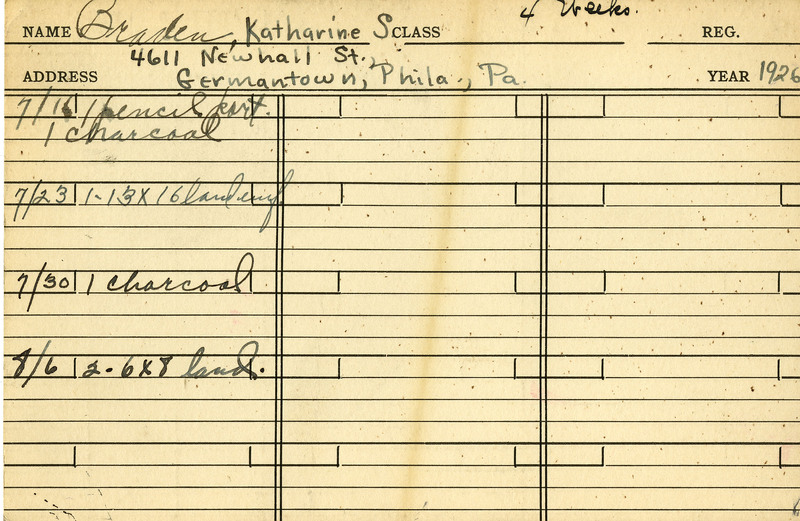 4 Weeks.
NAME Braden, Katharine S. CLASS REG.
4611 Newhall St.,
ADDRESS Germantown, Phila., Pa. YEAR 1926
7/16 1 pencil port.
1 charcoal
7/23 1-13x16 land.
7/30 1 charcoal
8/6 2-6x8 land.